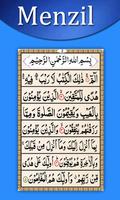 Menzil
بِسْمِ اللهِ الرَّحْمٰنِ الرَّحِيْمِ
الٓمّٓ ذٰلِكَ الْكِتٰبُ لَا رَيْبَ فِيْهِ
هُدًى لِّلْمُتَّقِيْنَ الَّذِيْنَ يُؤْمِنُوْنَ
بِالْغَيْبِ وَيُقِيْمُوْنَ الصَّلٰوةَ وَمِمَّا
رَزَقْنٰهُمْ يُنْفِقُوْنَ وَالَّذِيْنَ يُؤْمِنُوْنَ
بِمَآ اُنْزِلَ اِلَيْكَ وَمَآ اُنْزِلَ مِنْ